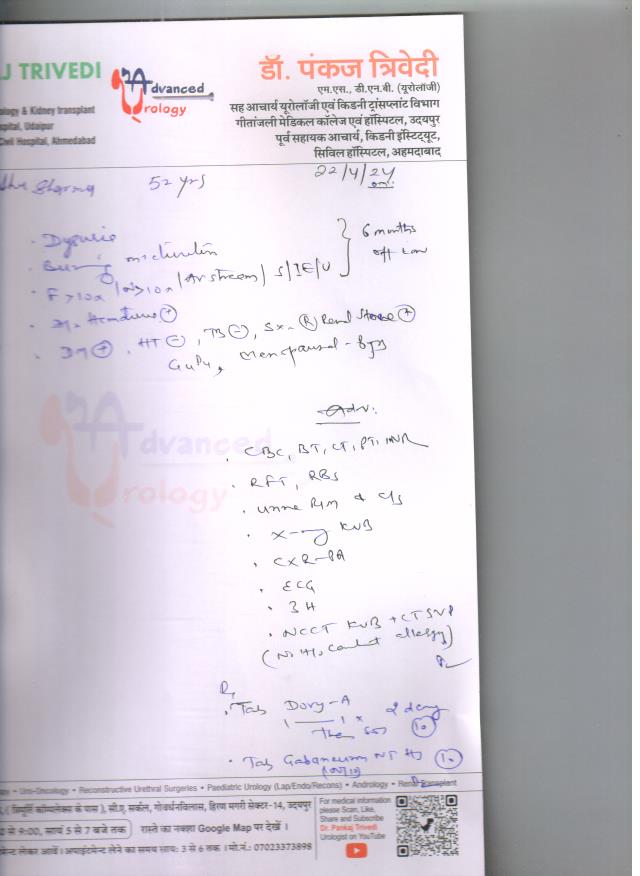 J TRIVEDI
Advanced
Urology
ology & Kidney transplant
spital, Udaipur
Civil Hospital, Ahmedabad
डॉ. पंकज त्रिवेदी
एम.एस., डी.एन.बी. (यूरोलॉजी)
सह आचार्य यूरोलॉजी एवं किडनी ट्रांसप्लांट विभाग
गीतांजली मेडिकल कॉलेज एवं हॉस्पिटल, उदयपुर
पूर्व सहायक आचार्य, किडनी इंस्टिट्यूट,
सिविल हॉस्पिटल, अहमदाबाद
Sharma 52 yrs 22/4/24
· Dysuria
· Burning micturition
6 months
· F >10x / N >10x / S/IE/U
· H/o Hematuria +
· DM +, HT -, TB -, Sx- R Renal Stone +
Menopausal -
Adv:
· CBC, BT, CT, PT, INR
· RFT, RBS
· Urine R/M & C/S
· X-ray KUB
· CXR-PA
· ECG
· 3H
· NCCT KUB + CT SVP
(No H/o contrast allergy)
Advanced
Urology
Rx
· Tab 1 1 x 2 days
Then 10
· Tab Gabaneuron NT 10
• Uro-Oncology • Reconstructive Urethral Surgeries • Paediatric Urology (Lap/Endo/Recons) • Andrology • Renal Transplant
( त्रिमूर्ति कॉम्पलेक्स के पास ), सी.ए. सर्कल, गोवर्धनविलास, हिरण मगरी सेक्टर-14, उदयपुर
से 9:00, सायं 5 से 7 बजे तक रास्ते का नक्शा Google Map पर देखें ।
लेकर आवें। अपाइंटमेन्ट लेने का समय सायः 3 से 6 तक । मो.नं.: 07023373898
For medical information
please Scan, Like,
Share and Subscribe
Dr. Pankaj Trivedi
Urologist on YouTube